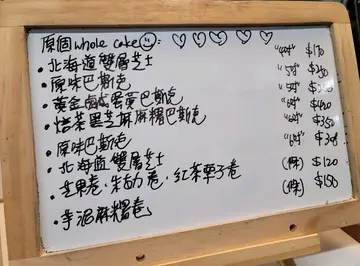 原個whole cake:
北海道雙層芝士 "4吋" $170
原味巴斯克 "5吋"
黃金鹹蛋黃巴斯克 "5吋"
焙茶黑芝麻麻糬巴斯克 "6吋" $420
原味巴斯克 "6吋" $350
北海道雙層芝士 "6吋" $308
芒果卷·朱古力卷·紅茶栗子卷 (1條) $120
芋泥麻糬卷 (1條) $150